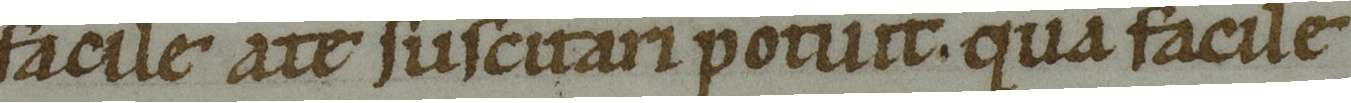 facile ate suscitari potuit. qua facile